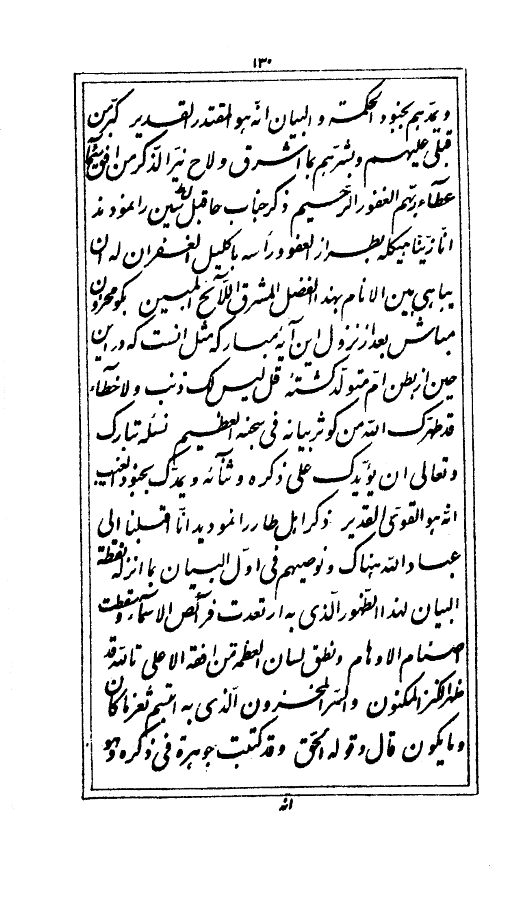 ١٣٠
و یمدّهم بجنود الحکمة و البیان انّه هو المقتدر القدیر کبّر من
قبلی علیهم و بشّرهم بما اشرق و لاح نیّر الذّکر من افق سمآء
عطآء ربّهم الغفور الرّحیم ذکر جناب حا قبل سین را نمودند
انّا زیّنّا هیکله بطراز العفو و رأسه باکلیل الغفران له ان
یباهی بین الانام بهذا الفضل المشرق اللّائح المبین بگو محزون
مباش بعد از نزول این آیهٴ مبارکه مثل آنست که در این
حین از بطن امّ متولّد گشتهٴ قل لیس لک ذنب و لا خطآء
قد طهّرک الله من کوثر بیانه فی سجنه العظیم نسئله تبارک
و تعالی ان یؤیّدک علی ذکره و ثنآئه و یمدّک بجنود الغیب
انّه هو القویّ القدیر ذکر اهل طار را نمودید انّا اقبلنا الی
عباد الله هناک و نوصیهم فی اوّل البیان بما انزله نقطة
البیان لهذا الظّهور الّذی به ارتعدت فرآئص الاسمآء و سقطت
اصنام الاوهام و نطق لسان العظمة من افقه الاعلی تالله قد
ظهر الکنز المکنون و السّرّ المخزون الّذی به ابتسم ثغر ما کان
و ما یکون قال و قوله الحقّ و قد کتبت جوهرة فی ذکره و هو
انّه